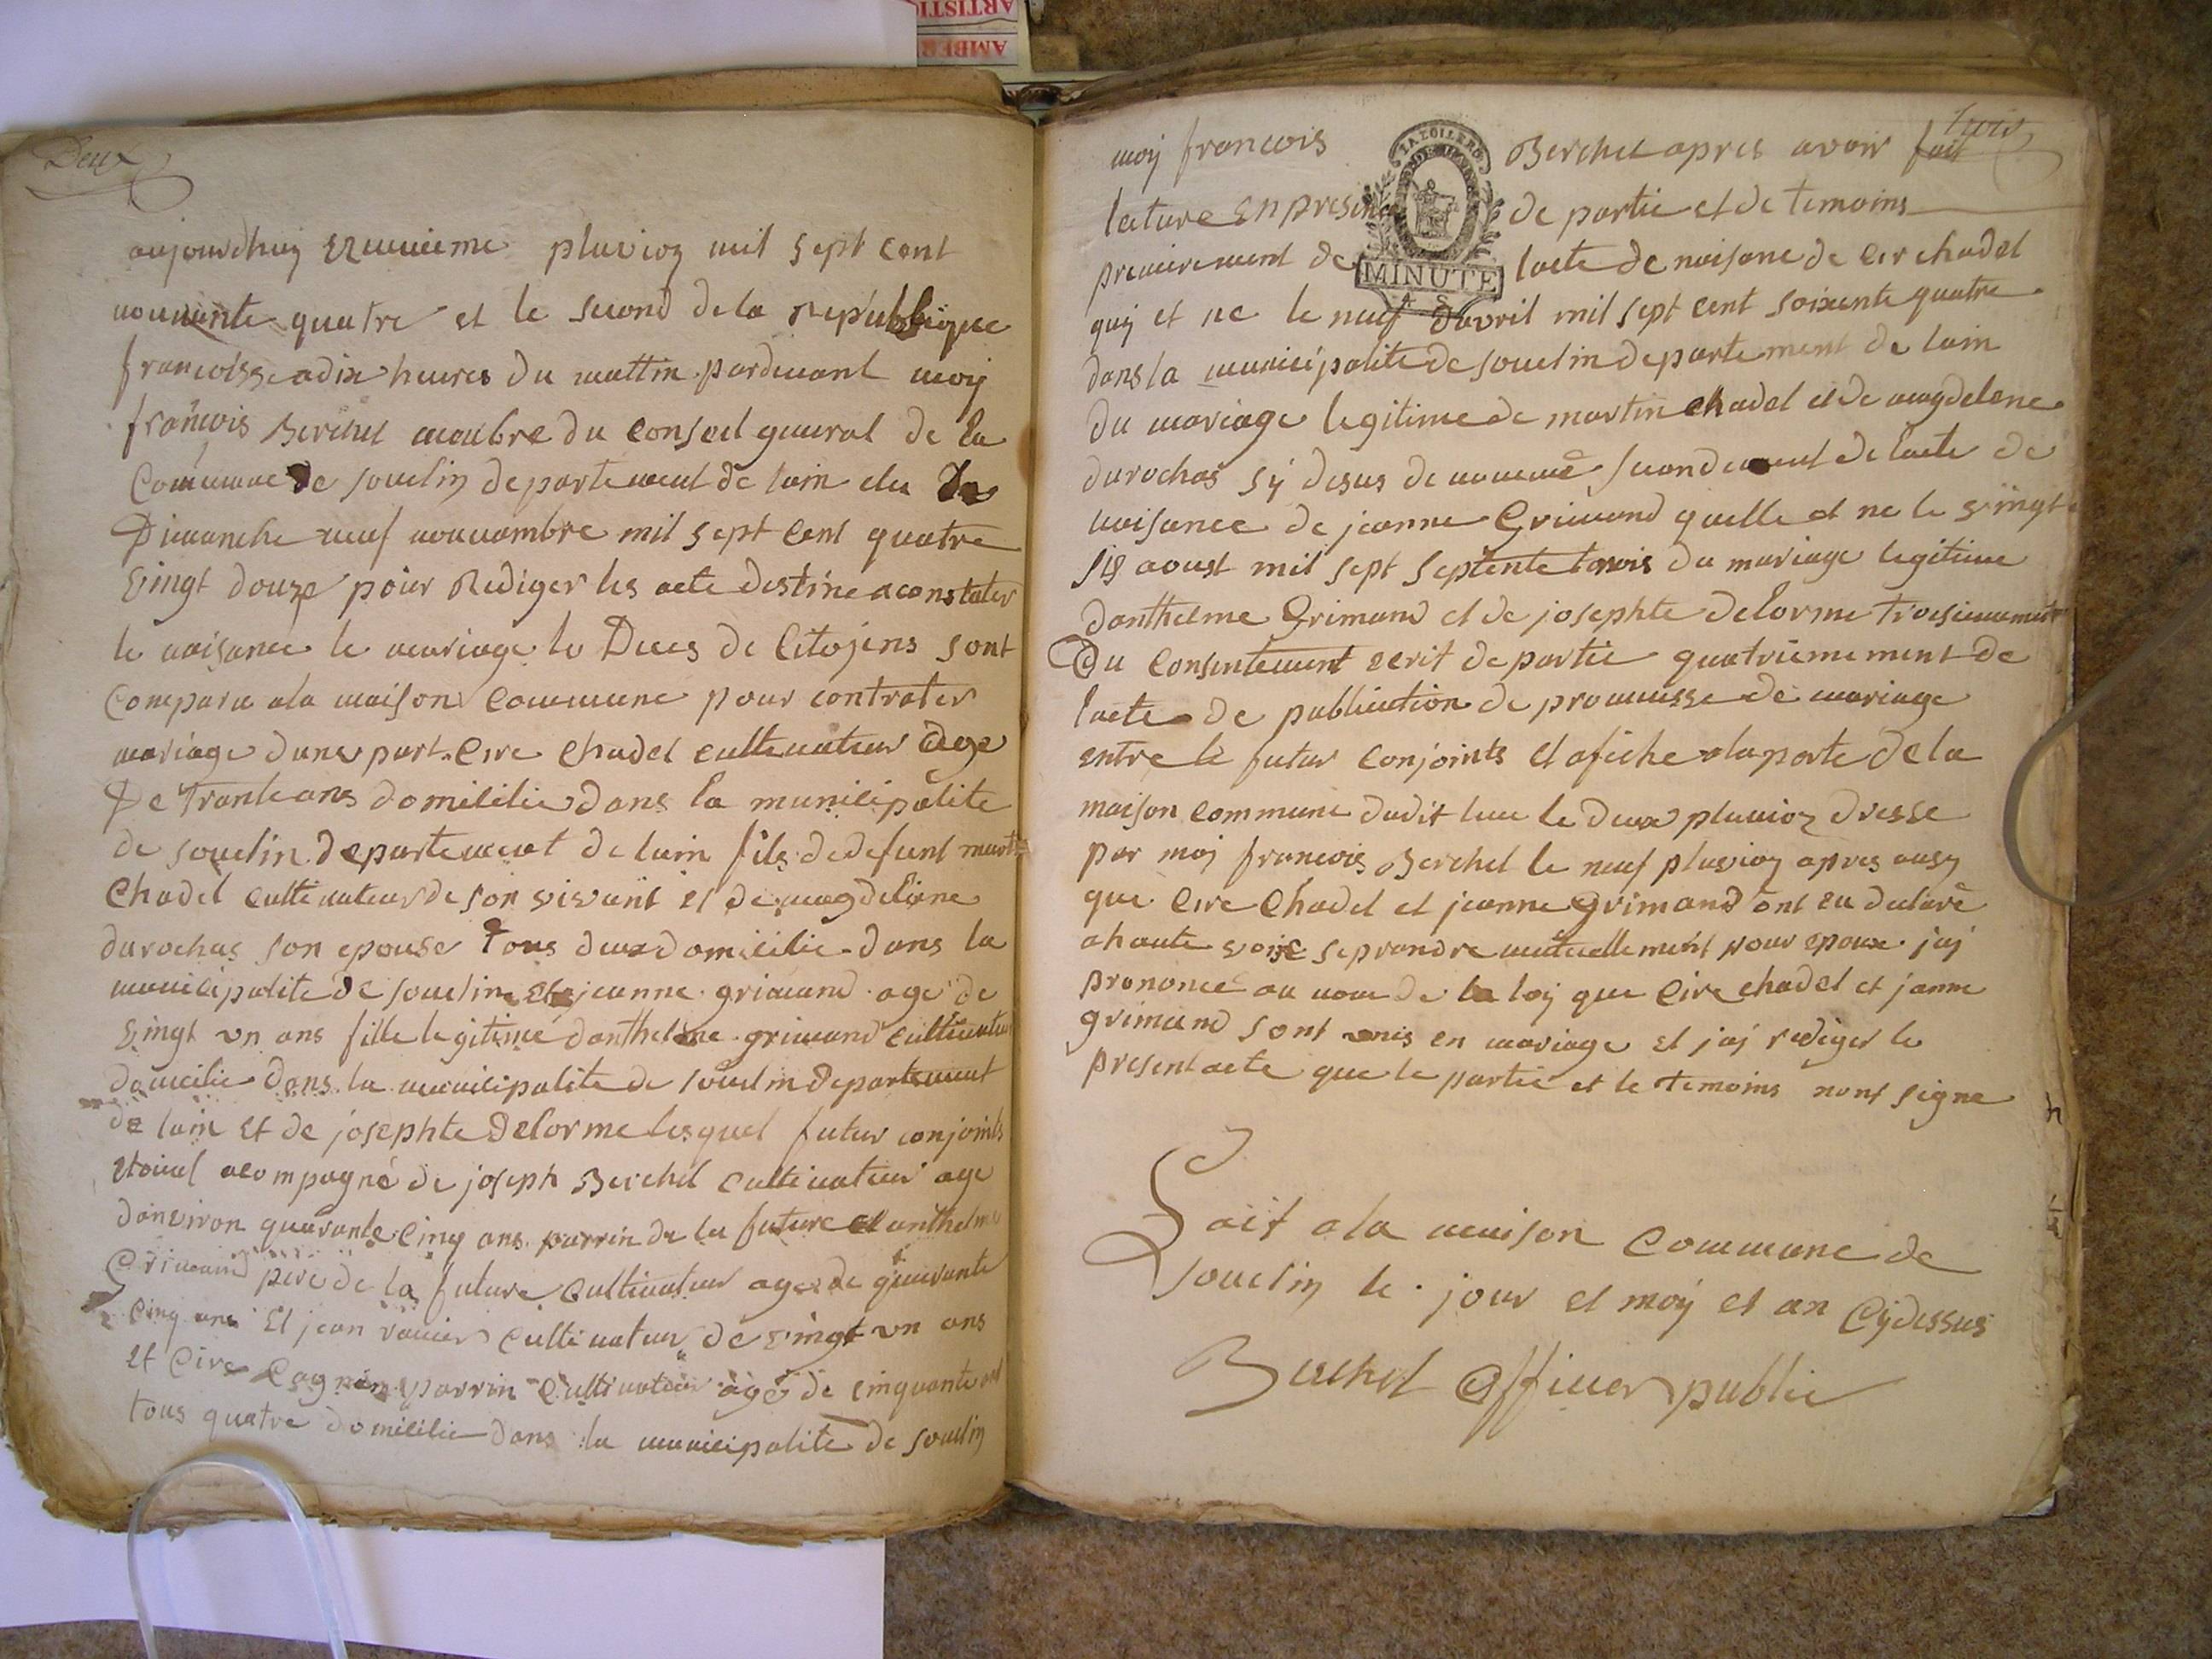 ARTISTI
AMBER
Deux
aujourdhuy neuvieme pluvioz mil sept cent
nonante quatre et le second de la republique
francoisse a dix heures du mattin pardevant moy
francois Berchet manbre du Conseil general de la
Commune de souclin departement de lain elu le
Dimanche neuf nouvambre mil sept cent quatre
vingt douze pour Rediger les acte destine a constater
le naisance le mariage le Deces de Citojens sont
Comparu a la maison Commune pour contrater
mariage dune part Cire Chadel cultivateur age
De Trante ans domicilie dans la municipalite
de souclin departement de lain fils de defunt mart
Chadel cultivateur de son vivant et de magdeleine
durochas son epouse tous deux domicilie dans la
municipalite de souclin et jeanne grimand age de
vingt un ans fille legitime danthelme grimand cultivateur
domicilie dans la municipalite de souclin departement
de lain et de josephte Delorme lesquel futur conjoints
etoient acompagné de joseph Berchet cultivateur age
danviron quarante cinq ans parrin de la future et anthelme
Grimand pere de la future cultivateur age de quarante
cinq ans et jean cultivateur de vingt un ans
et Cire Cagnin parrin cultivateur age de cinquante ans
tous quatre domicilie dans la municipalite de souclin
trois
moy francois Berchet apres avoir fait
lecture en presence de partie et de temoins
premierement de lacte de naisane de Cir chadel
quy et ne le neuf davril mil sept cent soixente quatre
dans la municipalite de souclin departement de lain
du mariage legitime de martin chadel et de magdelene
durochas sy desus de nommé secondement de lacte de
naisance de jeanne Grimand quelle et ne le vingt
six aoust mil sept septente trois du mariage legitime
danthelme Grimand et de josephte delorme troisiemement
Du consentement ecrit de partie quatriemement de
lacte de publication de prommisse de mariage
entre le futur conjoints et afiche a la porte de la
maison commune dudit lieu le deux pluvioz dresse
par moy francois Berchet le neuf pluvioz apres ausy
que Cire Chadel et jeanne grimand ont eu declaré
a haute voix se prandre mutuellement pour epoux jaj
prononcé au nom de la loy que Cire chadel et janne
grimand sont unis en mariage et jaj rediger le
present acte que le partie et le temoins nont signe
Fait a la maison Commune de
souclin le jour et moy et an Cydessus
Berchet officier public
LA LOI LE RO
MINUTE
4 S